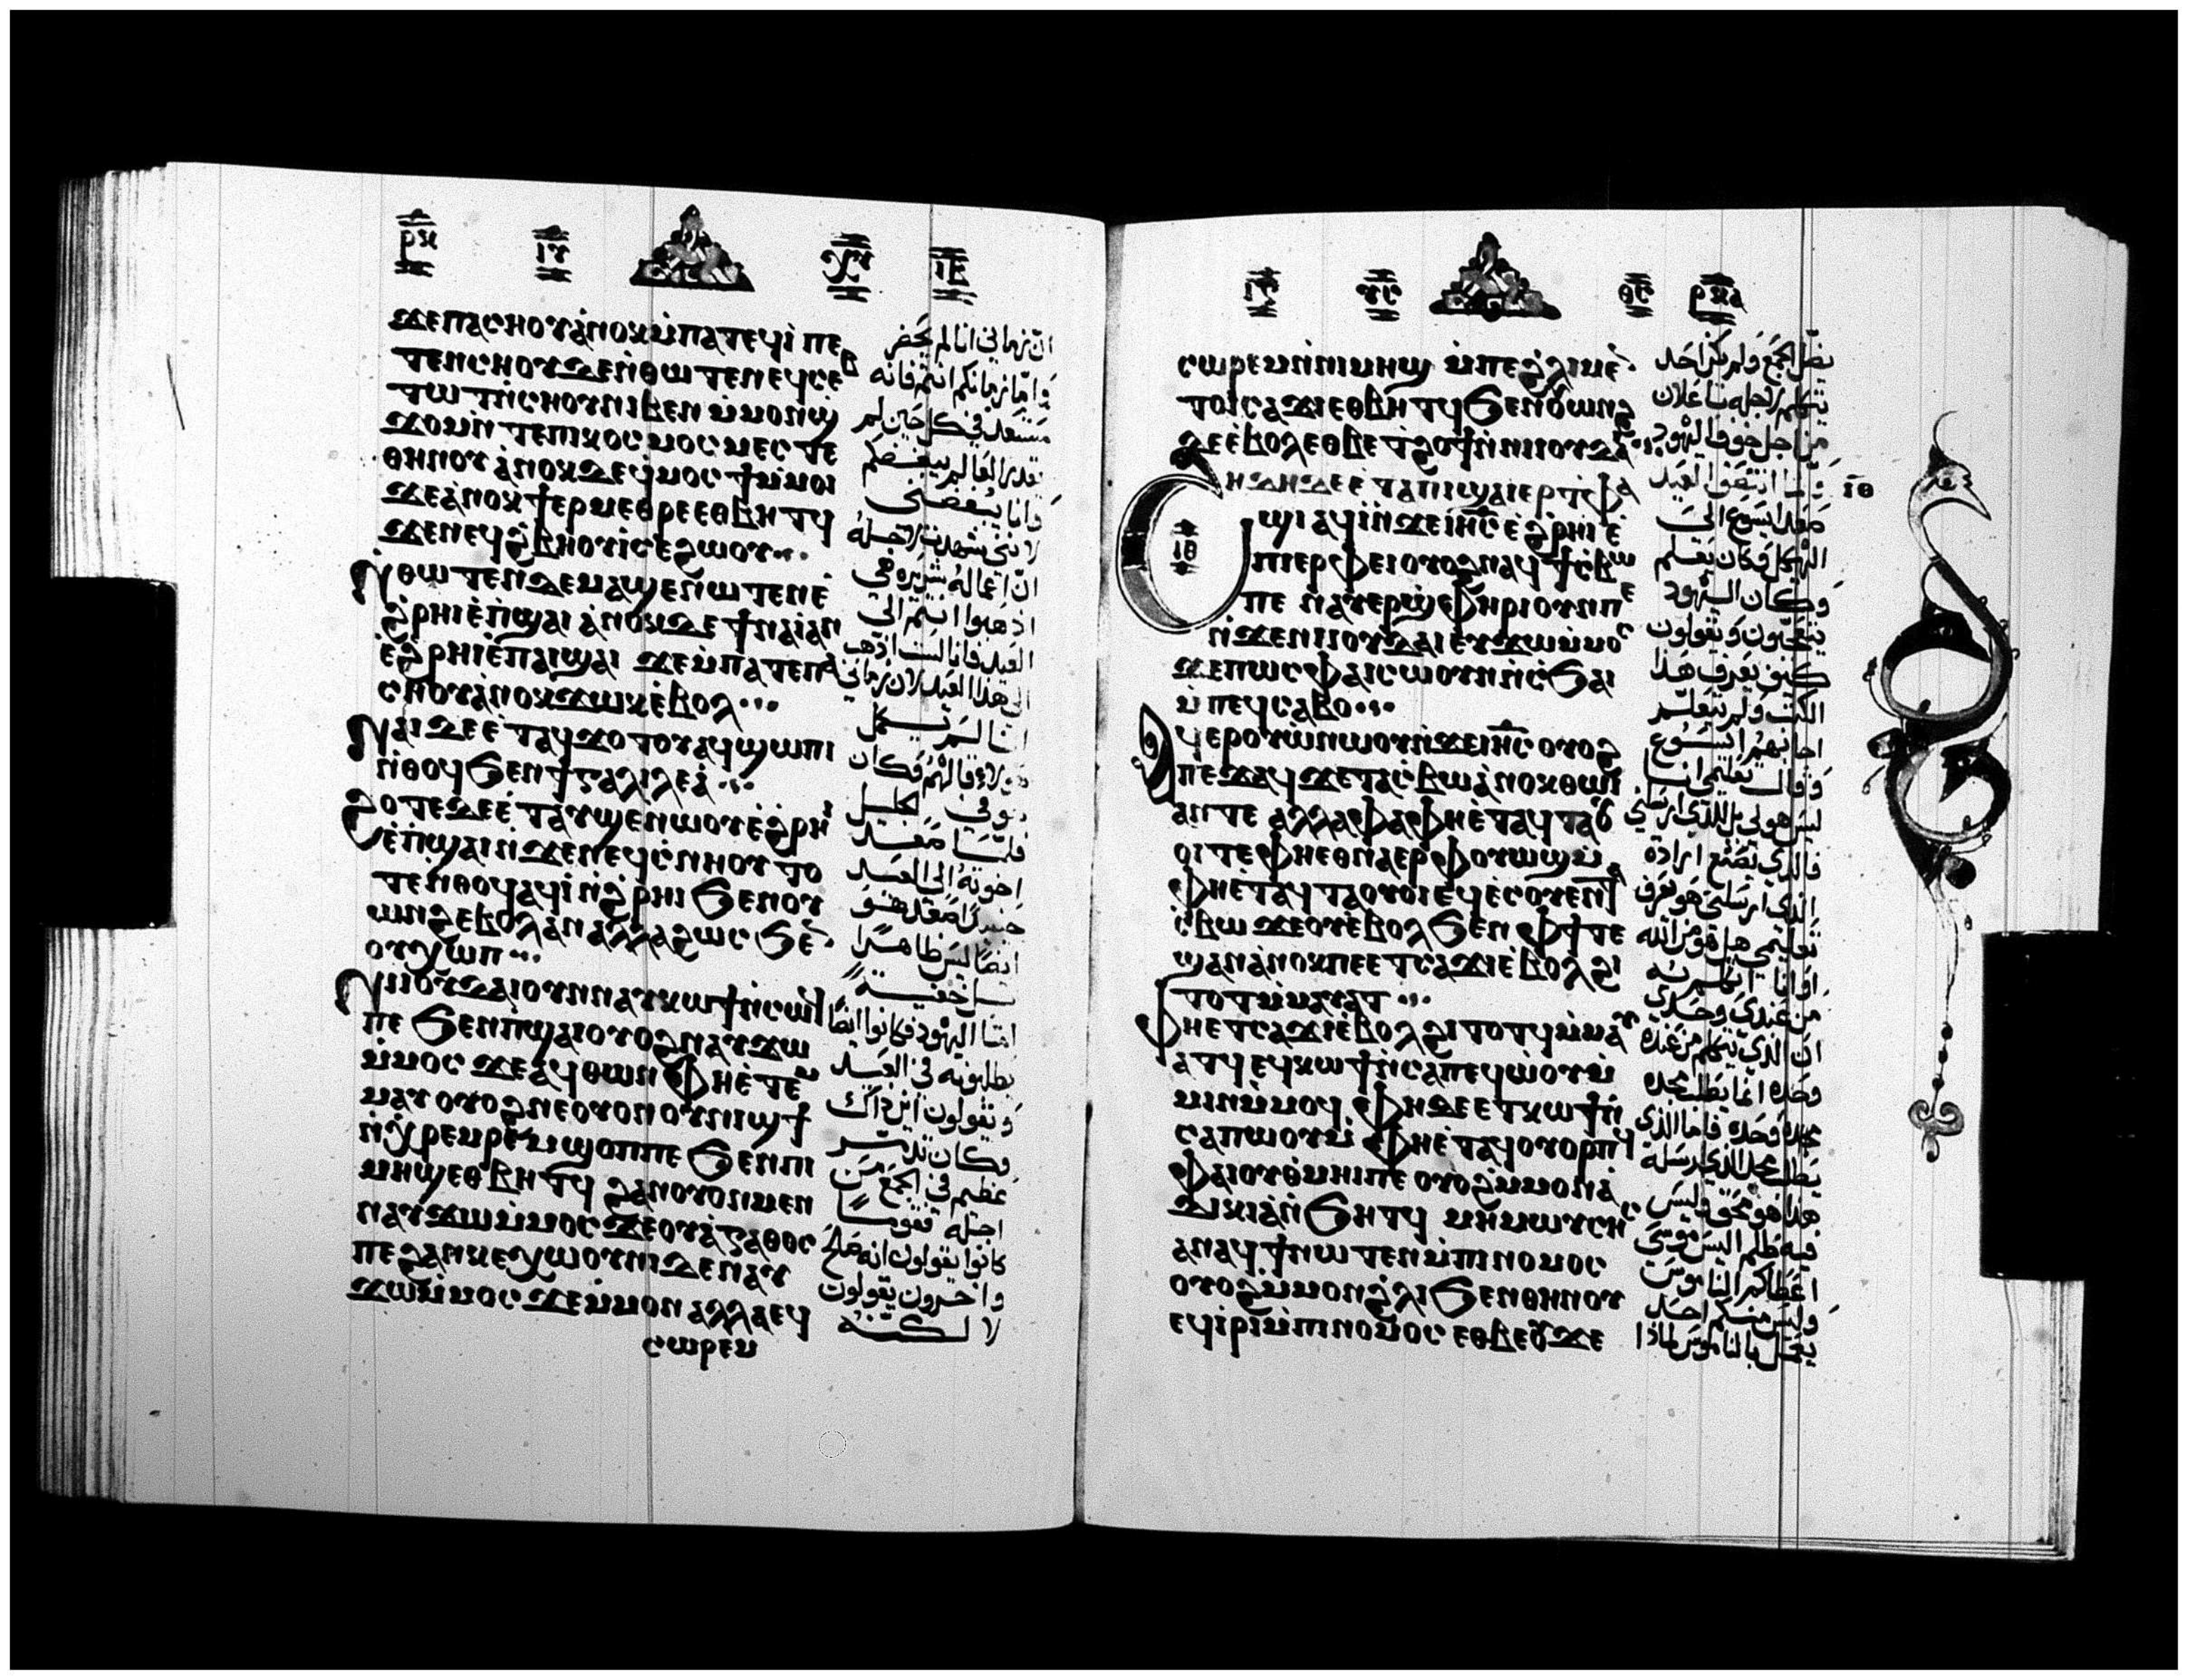 ϫⲉⲡⲁⲥⲏⲟⲩⲁ̀ⲛⲟⲕⲙ̀ⲡⲁⲧⲉϥⲓ̀ ⲡⲉ
ⲧⲉⲛⲥⲏⲟⲩϫⲉⲛ̀ⲑⲱⲧⲉⲛⲉϥⲥⲉⲃ
ⲧⲱⲧⲛ̀ⲥⲏⲟⲩⲛⲓⲃⲉⲛ ⲙ̀ⲙⲟⲛϣ̀
ϫⲟⲙⲛ̀ⲧⲉⲡⲓⲕⲟⲥⲙⲟⲥⲙⲉⲥⲧⲉ
ⲑⲏⲛⲟⲩ ⲁ̀ⲛⲟⲕϫⲉϥ̀ⲙⲟⲥϯⲙ̀ⲙⲟⲓ
ϫⲉⲁ̀ⲛⲟⲕϯⲉⲣⲙⲉⲑⲣⲉⲉⲑⲃⲏⲧϥ
ϫⲉⲛⲉϥϩ̀ⲃⲏⲟⲩⲓ̀ⲥⲉϩⲱⲟⲩ
ⲛ̀ⲑⲱⲧⲉⲛϫⲉⲙⲁϣⲉⲛⲱⲧⲉⲛⲉ̀
ϩ̀ⲣⲏⲓⲉ̀ⲡ̀ϣⲁⲓ ⲁ̀ⲛⲟⲕϫⲉ ϯⲛⲁⲓ̀ⲁⲛ
ⲉ̀ϩ̀ⲣⲏⲓⲉ̀ⲡⲁⲓϣⲁⲓ ϫⲉⲙ̀ⲡⲁⲧⲉⲡⲁ
ⲥⲏⲟⲩⲁ̀ⲛⲟⲕϫⲱⲕⲉ̀ⲃⲟⲗ
ⲛⲁⲓϫⲉⲉ̀ⲧⲁϥϫⲟⲧⲟⲩⲁϥϣⲱⲡⲓ
ⲛ̀ⲑⲟϥϧⲉⲛϯⲅⲁⲗⲓⲗⲉⲁ̀
ϩⲟⲧⲉϫⲉⲉ̀ⲧⲁⲩϣⲉⲛⲱⲟⲩⲉ̀ϩ̀ⲣⲏⲓ
ⲉ̀ⲡ̀ϣⲁⲓⲛ̀ϫⲉⲛⲉϥⲥ̀ⲛⲏⲟⲩ ⲧⲟ
ⲧⲉⲛ̀ⲑⲟϥⲁϥⲓ̀ⲛ̀ϩ̀ⲣⲏⲓ ϧⲉⲛⲟⲩ
ⲱⲛϩⲉⲃⲟⲗⲁⲛ ⲁⲗⲗⲁϩⲱⲥ ϧⲉⲛ
ⲟⲩⲭⲱⲡ
ⲛⲓⲓⲟⲩϫⲁⲓⲟⲩⲛⲛⲁⲩⲕⲱϯⲛ̀ⲥⲱϥ
ⲡⲉ ϧⲉⲛⲡ̀ϣⲁⲓⲟⲩⲟϩⲛⲁⲩϫⲱ
ⲙ̀ⲙⲟⲥ ϫⲉⲁϥⲑⲱⲛ ⲫⲏⲉ̀ⲧⲉⲙ
ⲙⲁⲩ ⲟⲩⲟϩⲛⲉⲟⲩⲟⲛⲟⲩⲛⲓϣϯ
ⲛ̀ⲭⲣⲉⲙⲣⲉⲙϣⲟⲡⲡⲉ ϧⲉⲛⲡⲓ
ⲙⲏϣⲉⲑⲃⲏⲧϥ ϩⲁⲛⲟⲩⲟⲛⲙⲉⲛ
ⲛⲁⲩϫⲱⲙ̀ⲙⲟⲥ ϫⲉⲟⲩⲁ̀ⲅⲁⲑⲟⲥ
ⲡⲉ ϩⲁⲛⲕⲉⲭⲱⲟⲩⲛⲓϫⲉⲛⲁⲩ
ϫⲱⲙ̀ⲙⲟⲥ ϫⲉⲙ̀ⲙⲟⲛ ⲁⲗⲗⲁⲉϥ
ⲥⲱⲣⲉⲙ
ان زماني انا لم يحضر
واما زمانكم انتم فانه
مستعد في كل حين لم
يقدر العالم يبغضكم
وانا يبغضني
لانني شهدت لاجله
ان اعماله شريره هي
اذهبوا انتم الى
العيد فانا لست اذهب
الى هذا العيد لان زماني
انا لم يكمل
هولاء قالهم فكان
هو في الجليل
فلما صعد
اخوته الى العيد
حينيذ صعد هو
ايضا ليس ظاهرا
بل خفية
اما اليهود فكانوا ايضا
يطلبونه في العيد
ويقولون اين ذاك
وكان تذمر
عظيم في الجمع من
اجله فقوما
كانوا يقولون انه صالح
واخرون يقولون
لا لكنه
ⲥⲱⲣⲉⲙⲛ̀ⲡⲓⲙⲏϣ ⲙ̀ⲡⲉϩ̀ⲗⲓⲙⲉⲛ
ⲧⲟⲓⲥⲁϫⲓⲉⲑⲃⲏⲧϥϧⲉⲛⲟⲩⲱⲛϩ
ϩⲉⲉ̀ⲃⲟⲗⲉⲑⲃⲉⲧ̀ϩⲟϯⲛ̀ⲛⲓⲓⲟⲩϫⲁⲓ
ϩⲏϫⲏϫⲉⲉ̀ⲧⲁⲡⲓϣⲁⲓⲉⲣⲧ̀ⲫⲁ
ϣⲓ ⲁϥⲓ̀ⲛ̀ϫⲉⲓⲏⲥ ⲉ̀ϩ̀ⲣⲏⲓ ⲉ̀
ⲡⲓⲉⲣⲫⲉⲓⲟⲩⲟϩⲛⲁϥϯⲥ̀ⲃⲱ
ⲡⲉ ⲛⲁⲩⲉⲣϣ̀ⲫⲏⲣⲓⲟⲩⲛⲡⲉ
ⲛ̀ϫⲉⲛⲓⲓⲟⲩϫⲁⲓ ⲉⲩϫⲱⲙ̀ⲙⲟⲥ
ϫⲉⲡⲱⲥ ⲫⲁⲓⲥⲱⲟⲩⲛⲛ̀ⲥ̀ϧⲁⲓ
ⲙ̀ⲡⲉϥⲥⲁⲃⲟ
ⲁϥⲉⲣⲟⲩⲱ̀ⲛⲱⲟⲩⲛ̀ϫⲉⲓⲏⲥ ⲟⲩⲟϩ
ⲡⲉϫⲁϥ ϫⲉⲧⲁⲥ̀ⲃⲱⲁ̀ⲛⲟⲕⲑⲱⲓ
ⲁⲛⲧⲉ ⲁⲗⲗⲁⲫⲁⲫⲏⲉ̀ⲧⲁϥⲧⲁⲟⲩ
ⲟⲓⲧⲉ ⲫⲏⲉⲑⲛⲁⲉⲣⲫⲟⲩⲱϣⲙ̀
ⲫⲏⲉ̀ⲧⲁϥⲧⲁⲟⲩⲟⲓⲉϥⲉ̀ⲥⲟⲩⲉⲛ
ⲥ̀ⲃⲱ ϫⲉⲟⲩⲉ̀ⲃⲟⲗϧⲉⲛ ⲫϯⲧⲉ
ϣⲁⲛⲁ̀ⲛⲟⲕⲡⲉⲉⲧⲥⲁϫⲓⲉ̀ⲃⲟⲗϩⲓ
ⲧⲟⲧⲙ̀ⲙⲁⲩⲁⲧ
ⲫⲏⲉⲧⲥⲁϫⲓⲉ̀ⲃⲟⲗϩⲓⲧⲟⲧϥⲙ̀ⲙⲁⲩ
ⲁⲧϥ ⲉϥⲕⲱϯⲛ̀ⲥⲁⲡⲉϥⲱ̀ⲟⲩⲙ̀
ⲙⲓⲛⲙ̀ⲙⲟϥ ⲫⲏϫⲉⲉⲧⲕⲱϯⲛ̀
ⲥⲁⲡⲱⲟⲩⲙ̀ ⲫⲏⲉ̀ⲧⲁϥⲟⲩⲟⲣⲡϥ
ⲫⲁⲓⲟⲩⲑ̀ⲙⲏⲓⲡⲉ ⲟⲩⲟϩⲙ̀ⲙⲟⲛⲁ̀
ϫⲓⲕⲓⲁ̀ⲛ̀ϧⲏⲧϥ ⲙⲏⲙⲱⲩⲥⲏⲥ
ⲁⲛⲁϥϯⲛⲱⲧⲉⲛⲙ̀ⲡⲓⲛⲟⲙⲟⲥ
ⲟⲩⲟϩⲙ̀ⲙⲟⲛϩ̀ⲗⲓϧⲉⲛⲑⲏⲛⲟⲩ
ⲉϥⲓ̀ⲣⲓⲙ̀ⲡⲓⲛⲟⲙⲟⲥ ⲉⲑⲃⲉⲟⲩϫⲉ
يضل الجمع ولم يكن احد
يتكلم لاجله باعلان
من اجل خوف اليهود
ولما انتصف العيد
صعد يسوع الى
الهيكل وكان يعلم
وكان اليهود
يتعجبون ويقولون
كيف يعرف هذا
الكتب ولم يتعلم
اجابهم يسوع
وقال تعليمي انا
ليس هو لي بل للذي ارسلني
فالذي يصنع ارادة
الذي ارسلني هو يعرف
تعليمي هل هو من الله
او انا اتكلم به
من عندي وحدي
ان الذي يتكلم من عنده
وحده انما يطلب مجده
وحده فاما الذي
يطلب مجد الذي ارسله
هذا هو محق وليس
فيه ظلم اليس موسى
اعطاكم الناموس
وليس منكم احد
يعمل بالناموس لماذا